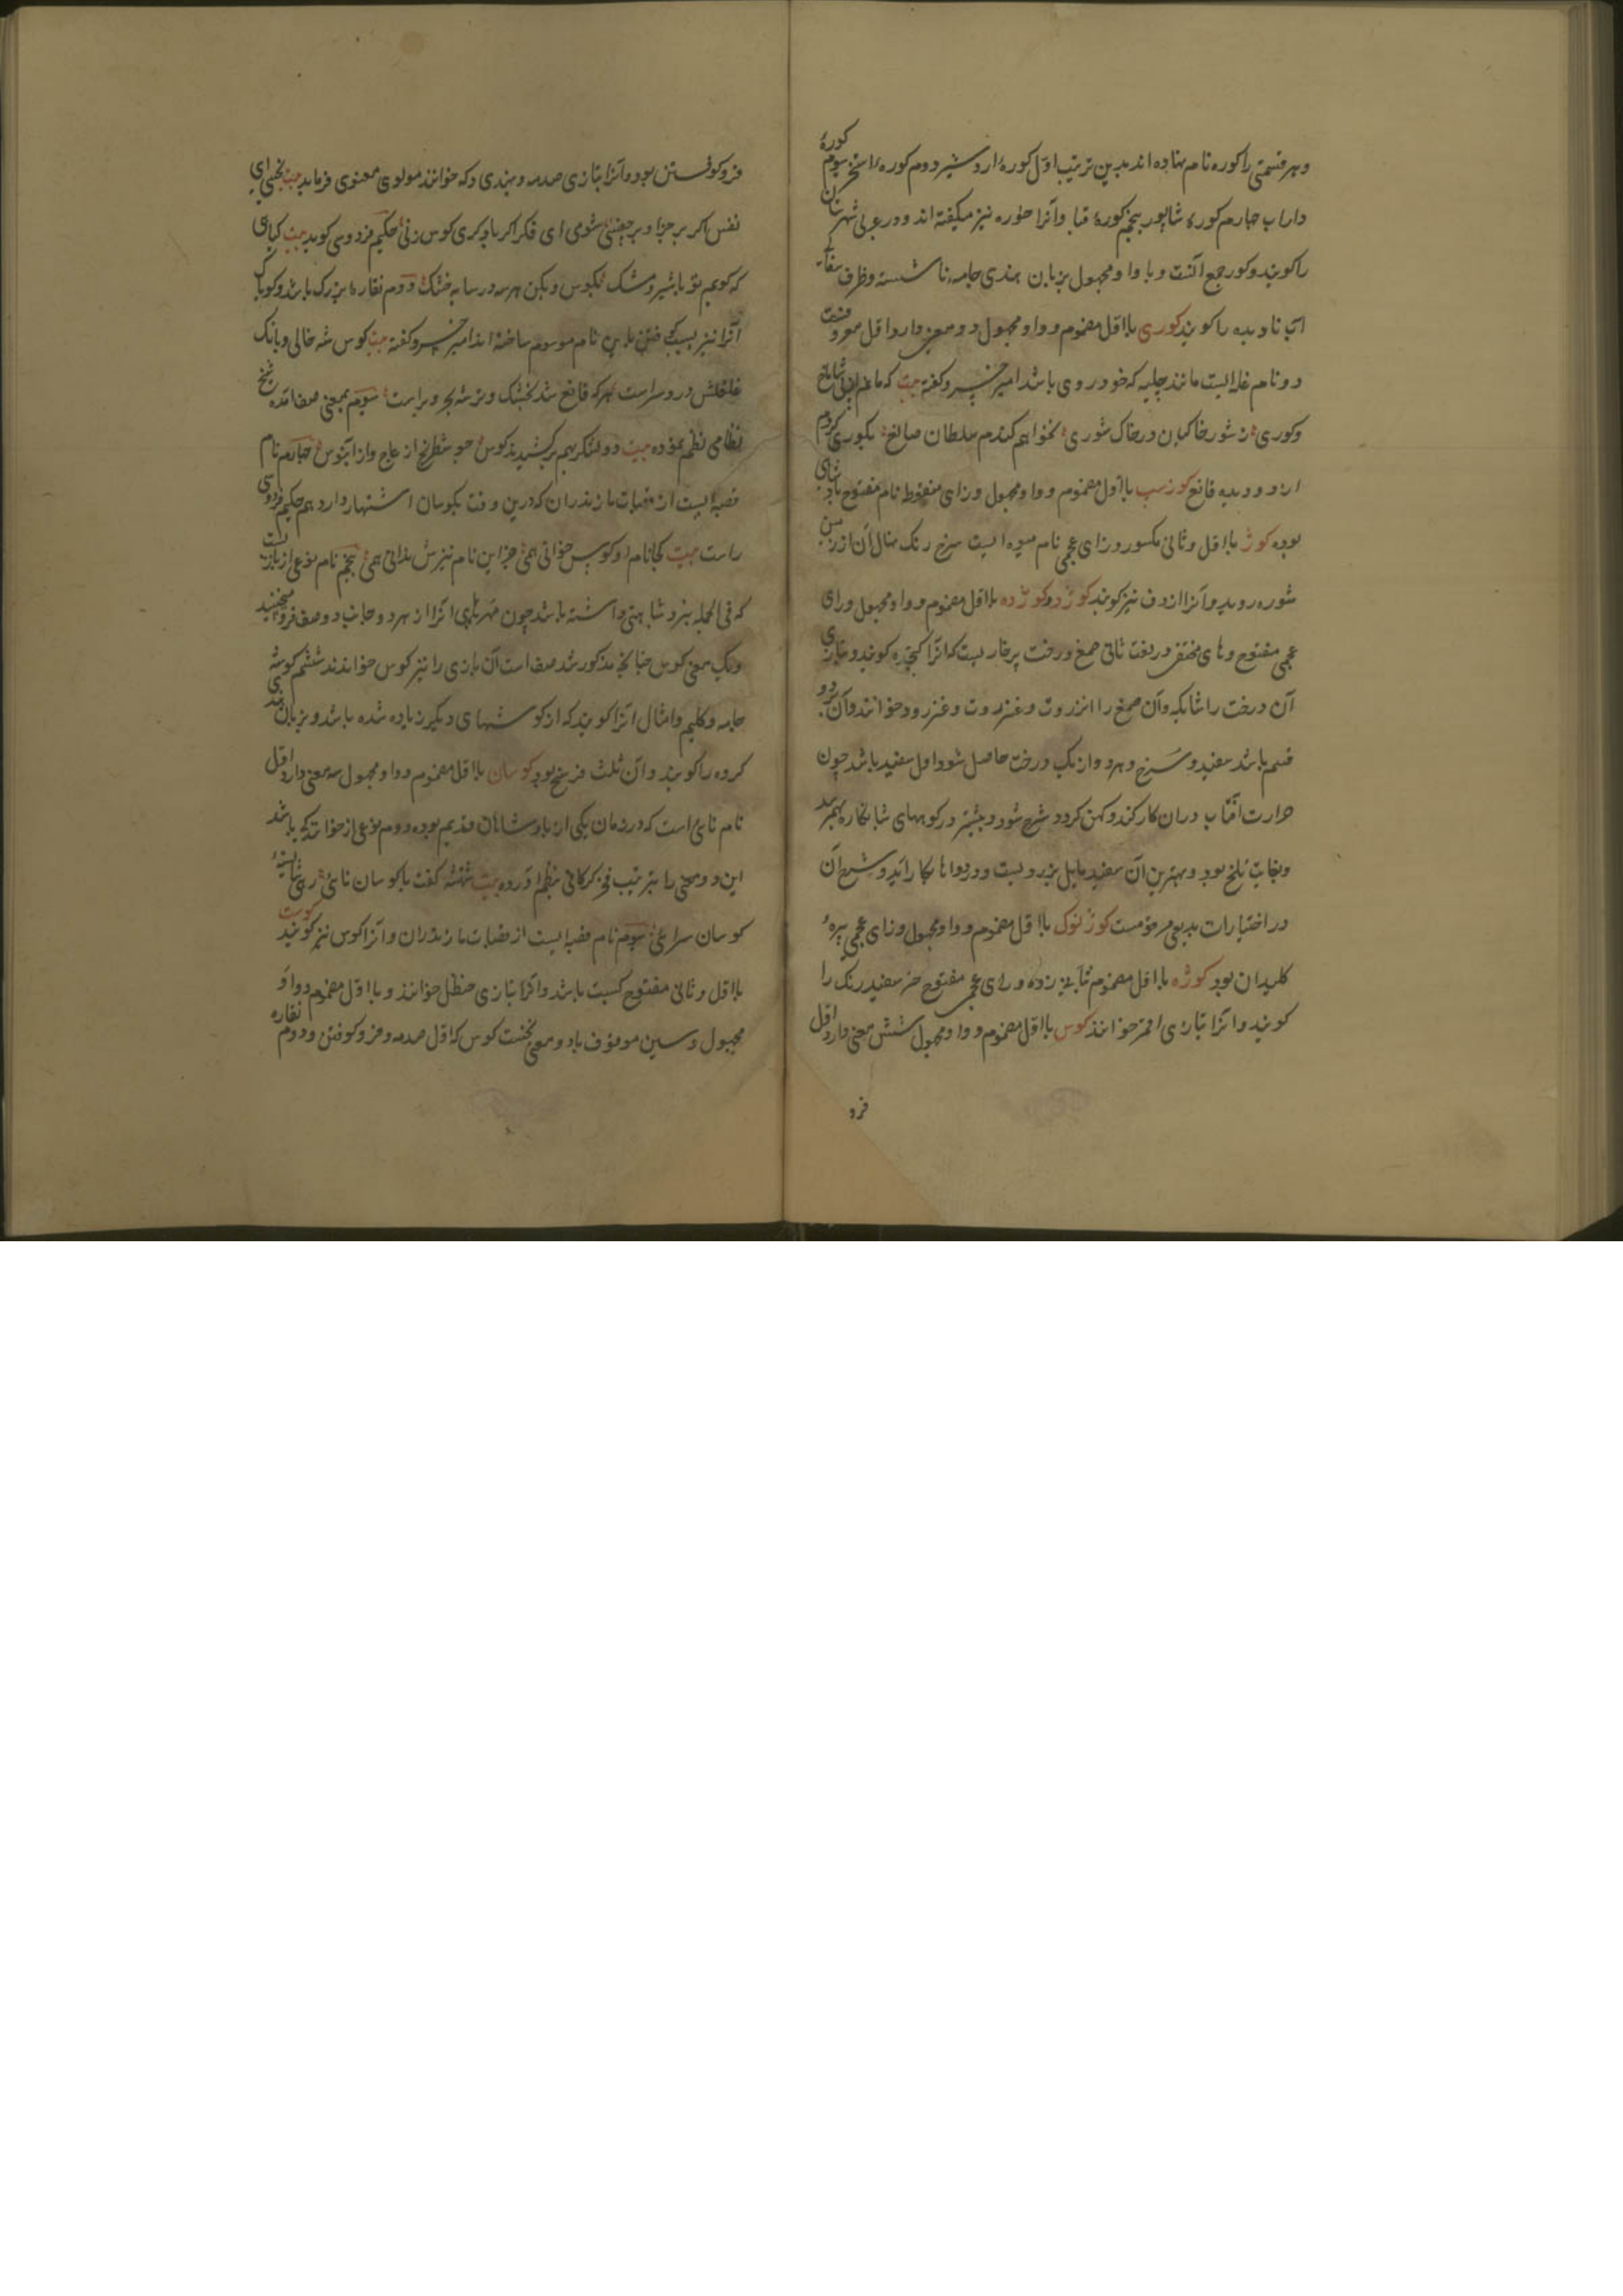 وهر قسمتی را کوره نام نهاده اند بدین ترتیب اول کورهٔ اردشیر دوم کورهٔ استخر سوم کورهٔ
داراب چهارم کورهٔ شاپور پنجم کورهٔ قبا وآنرا خوره نیز میگفته اند ودر عربی شهرستان
را کویند وکور جمع آنست وبا واو مجهول بزبان هندی جامهٔ ناشسته وظرف سفال
آب نادیده را کویند کوری با اول مضموم وواو مجهول دو معنی دارد اول معروفست
دو نام غله ایست مانند که خود روی باشد امیر خسرو کفته بیت که ما
وکوری ز شور خاکیان در خاک شوری نخواهم کندم سلطان صانع بکوری کردم
از دو دیده قانع کورسپ با اول مضموم وواو مجهول وزای منقوط نام
بوده کوژ با اول وثانی مکسور وزای عجمی نام میوه ایست سرخ رنک نهال آن از زمین
شوره روید وآنرا ازدف نیز کویند کوژد وکوژده با اول مضموم وواو مجهول وزای
عجمی مفتوح وهای مختفی در لغت ثانی صمغ درخت پرخاریست که آنرا کویند وبتازی
آن درخت را شایکه وآن صمغ را انزروت وعنزروت وعنزرود خوانند وآن بر دو
قسم باشد سفید وسرخ وهر دو از یک درخت حاصل شود اول سفید باشد چون
حرارت آفتاب دران کار کند وکهن کردد سرخ شود وبیشتر در کوههای شبانکاره بهم رسد
وبغایت تلخ بود وبهترین آن سفید مایل بزردیست ودر دواها بکار آید وشرح آن
در اختیارات بدیعی مرقومست کوژنوک با اول مضموم وواو مجهول وزای عجمی پرهٔ
کلیدان بود کوژه با اول مضموم بثانی زده وزای عجمی مفتوح خر سفید رنک را
کویند وآنرا بتازی اقمر خوانند کوس با اول مضموم وواو مجهول شش معنی دارد اول
فرو
فرو کوفتن بود وآنرا بتازی صدمه وبهندی دکه خوانند مولوی معنوی فرماید بیت
نفس اکر برجها شومی ای فکر اکر کوس زنی حکیم فردوسی کوید بیت
که کویم تو با شیر ومشک بکوس وبکن هر سه در سایه خشک دوم نقارهٔ بزرک باشد وکویا که
آنرا نیز بسبب کوفتن باین نام موسوم ساخته اند امیر خسرو کفته بیت کوس شه خالی وبانک
غلغلش درد سراست هر که قانع شد بخشک وتر شه بحر وبر است سوم بمعنی صف آمده شیخ
نظامی نظم نموده بیت دو لشکر بهم برکشیدند کوس چو شطرنج از عاج واز آبنوس چهارم نام
قصبه ایست از قصبات مازندران که درین وقت بکوسان اشتهار دارد هم حکیم فردوسی
راست بیت کجا نام او کوس خوانی همی جز این نام نیزش ندانی همی پنجم نام نوعی از بازیست
که فی الجمله بنرد شباهتی داشته باشد چون مهرهای آنرا از هر دو جانب دو صف فرو میچینند
ویک معنی کوس چنانچه مذکور شد صف است آن بازی را نیز کوس خوانند ششم کوشهٔ
جامه وکلیم وامثال آنرا کویند که از کوشهای دیکر زیاده شده باشد وبزبان هندی
کروه را کویند وآن ثلث فرسخ بود کوسان با اول مضموم وواو مجهول سه معنی دارد اول
نام نائی است که در زمان یکی از پادشاهان قدیم بوده دوم نوعی از خوانندکی باشد
این دو معنی را بترتیب فخر کرکانی بنظم آورده بیت شهنشه کفت با کوسان نائی
کوسان سرائی سوم نام قصبه ایست از قصبات مازندران وآنرا کوس نیز کویند کوست
با اول وثانی مفتوح کبست باشد وآنرا بتازی حنظل خوانند وبا اول مضموم وواو
مجهول وسین موقوف باد ومعنی نخست کوس که اول صدمه وفرو کوفتن ودوم نقاره